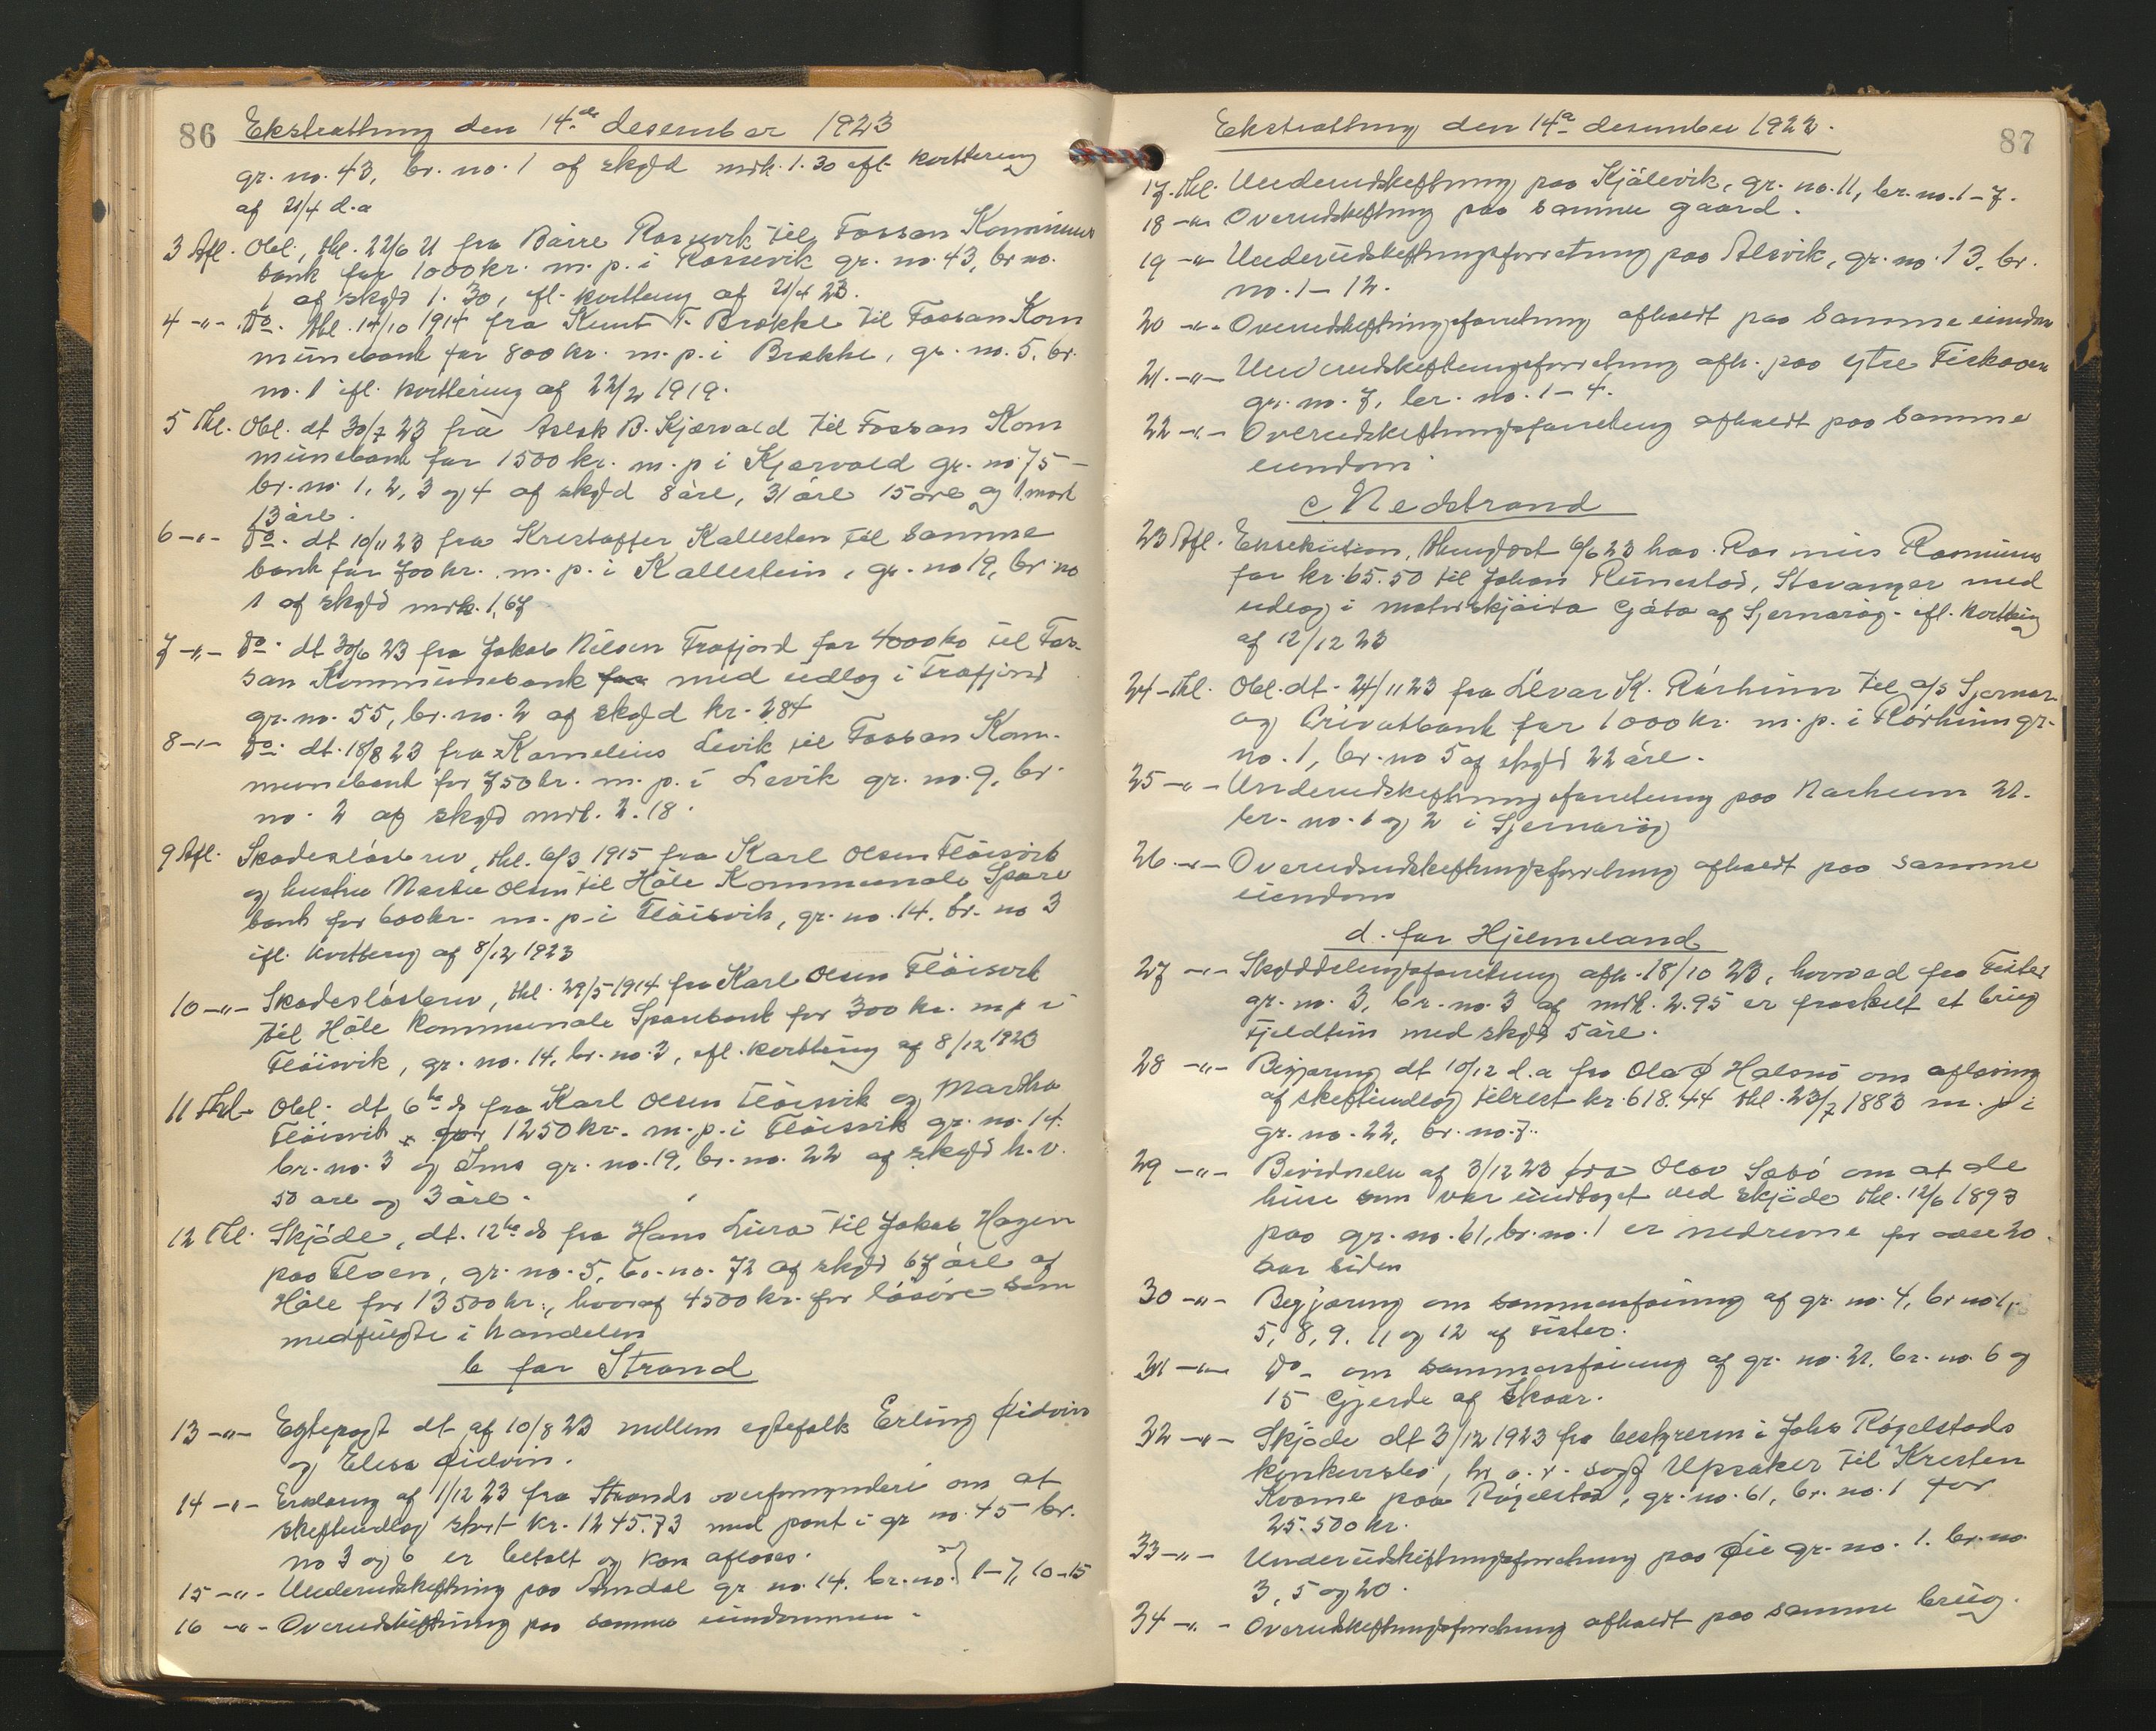 86 Ekstratting den 14.de desember 1923
gr. no. 43, br. no. 1 af skyld mrk. 1.30 efl. kvittering
af 21/4 d.a
3 Afl. Obl., thl. 22/6 21 fra Bárre Rossevik til Fossan Kommune
bank for 1000 kr. m. p. i Rossevik gr. no. 43, br no.
1 af skyld 1. 30, efl. kvittering af 21/4 23.
4 -"- Do. thl. 14/10 1914 fra Knut T. Brekke til Fossan Kom
munebank for 800 kr. m. p. i Brekke, gr. no. 5, br.
no. 1 ifl. kvittering af 22/2 1919.
5 Thl. Obl. dt 30/7 23 fra Aslak B. Kjærvold til Fossan Kom
munebank for 1500 kr. m. p i Kjervold gr. no 75 -
br. no 1, 2, 3 og 4 af skyld 8 åre, 31 åre 15 øre og 1 mark
13 åre.
6 -"- Do. dt 10/11 23 fra Kristoffer Kallesten til samme
bank for 700 kr. m. p. i Kallestein, gr. no 19, br no
1 af skyld mrk. 1,67
7 -"- Do. dt 30/6 23 fra Jakob Nilsen Frafjord for 4000 kr til Fos-
san Kommunebank for med udlæg i Frafjord
gr. no. 55, br. no. 2 af skyld kr. 2,84
8 -"- Do. dt. 18/8 23 fra Kornelius Levik til Fossan Kom-
munebank for 750 kr. m. p. i Levik gr. no. 9, br.
no. 2 af skyld mrk. 2.18.
9 Afl. Skadesløsbrev, thl. 6/3 1915 fra Karl Olsen Flöisvik
og hustru Marta Olsen til Høle Kommunale Spare
bank for 600 kr. m. p. i Flöisvik, gr. no. 14. br. no 3
ifl. kvittering af 8/12 1923
10 -"- Skadesløsbrev, thl. 29/5 1914 fra Karl Olsen Flöisvik
til Høle kommunale Sparebank for 300 kr. m p i
Flöisvik, gr. no. 14, br. no. 3, efl. kvittering af 8/12 1923
11 Thl. Obl. dt. 6te ds fra Karl Olsen Flöisvik og Martha
Flöisvik for 1250 kr. m. p. i Flöisvik gr. no. 14.
br. no. 3 og Ims gr. no. 19, br. no. 22 af skyld h. v.
50 åre og 3 åre.
12 Thl. Skjøde, dt. 12te ds fra Hans Lura til Jakob Hagen
paa Floen, gr. no. 5, br. no. 72 af skyld 67 åre af
Høle for 13500 kr., hvoraf 4500 kr. for løsøre som
medfulgte i handelen
b for Strand
13 -"- Egtepagt dt af 10/8 23 mellem egtefolk Erling Eidvin
og Elisa Eidvin.
14 -"- Erklæring af 1/12 23 fra Strands overformynderi om at
skifteudlæg stort kr. 1245.73 med pant i gr no. 45 br.
no 3 og 6 er betalt og kan afløses.
15 -"- Underudskiftning paa Amdal gr. no. 14. br. no. 1-7, 10-15
16 -"- Overudskiftning paa samme eiendommen.
Ekstratting den 14de desember 1923. 87
17. thl. Underudskiftning paa Kjålevik, gr. no. 11, br. no. 1-7.
18 -"- Overudskiftning paa samme gaard.
19 -"- Underudskiftningsforretning paa Alsvik, gr. no. 13, br.
no. 1-12.
20 -"- Overudskiftningsforretning afholdt paa samme eiendom
21. -"- Underudskiftningsforretning afh. paa ytre Fiskaaen
gr. no. 7, br. no. 1-4.
22 -"- Overudskiftningsforretning afholdt paa samme
eiendom
c. Nedstrand
23 Afl. Eksekution, tinglyst 6/6 23 hos Rasmus Rasmussen
for kr. 65.50 til Johan Runestad, Stavanger med
udlæg i motorskjøita Gøta af Sjernarøy. ifl. kvittering
af 12/12 23
24 - thl. Obl. dt. 24/11 23 fra Elvar K. Rårheim til A/S Sjernar-
øy Privatbank for 1000 kr. m. p. i Rårheim gr.
no. 1, br. no 5 af skyld 22 åre.
25 -"- Underudskiftningsforretning paa Narheim 21.
br. no. 1 og 2 i Sjernarøy
26 -"- Overudsudskiftningsforretning afholdt paa samme
eiendom
d. for Hjelmeland
27 -"- Skylddelingsforretning afh. 18/10 23, hvorved fra Fister
gr. no. 3, br. no. 3 af mrk. 2.95 er fraskilt et brug
Fjeldtun med skyld 5 åre.
28 -"- Begjæring dt 10/12 d. a fra Ola Ø Halsnø om aflysing
af skifteudlæg tilrest kr. 618.44 thl. 23/7 1883 m. p i
gr. no. 22, br. no. 7.
29 -"- Bevidnelse af 3/12 23 fra Olav Sæbø om at de
huse som var undtaget ved skjøde thl. 12/6 1893
paa gr. no. 61, br. no. 1 er nedrevne for over 20
aar siden
30 -"- Begjæring om sammenføining af gr. no. 4, br no 1,
5, 8, 9, 11 og 12 af Fister.
31 -"- Do - om sammenføining af gr. no. 21, br. no. 6 og
15 Gjerde af Skaar.
32 -"- Skjøde dt 3/12 1923 fra bestyreren i Johs Røgelstads
konkursbo, hr o. r. sagf Upsaker til Kristen
Kvame paa Røgelstad, gr. no. 61, br. no. 1 for
25.500 kr.
33 -"- Underudskiftningsforretning paa Øie gr. no. 1. br. no
3, 5 og 20.
34 -"- Overudskiftningsforretning afholdt paa samme brug.